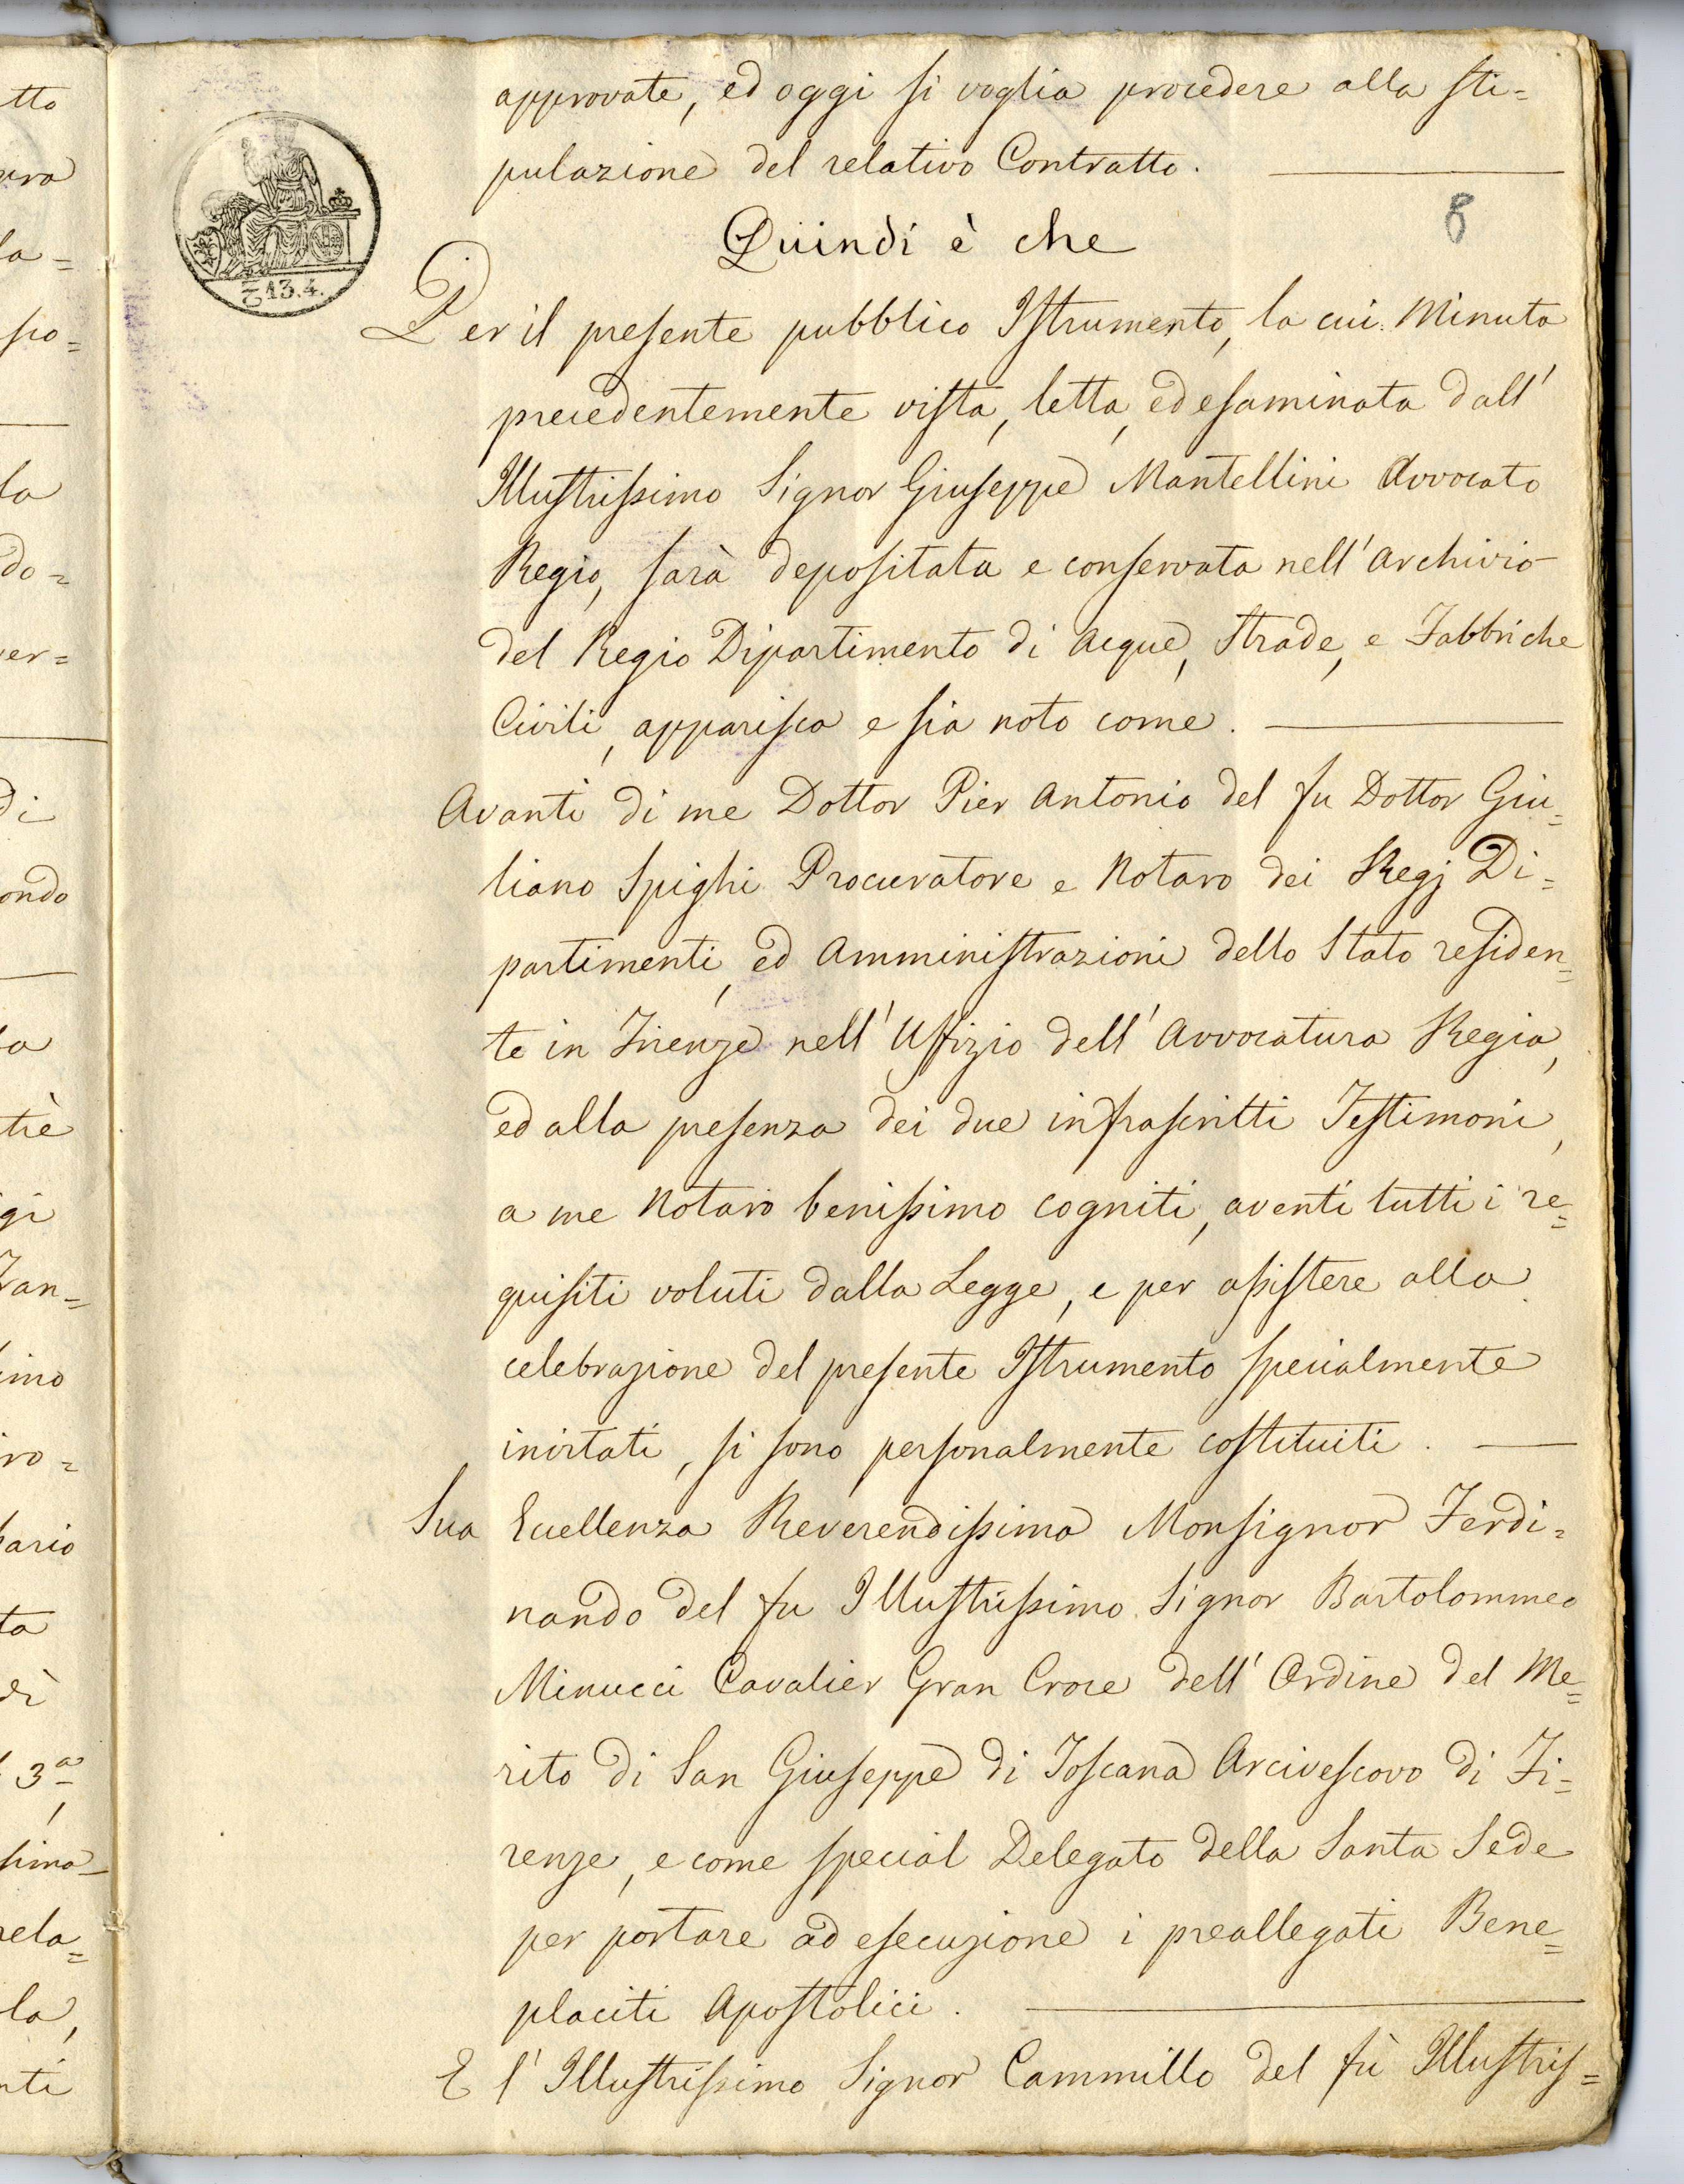 approvate, ed oggi si voglia procedere alla sti=
pulazione del relativo Contratto.
8
Quindi è che
13.4.
Per il presente pubblico Istrumento, la cui Minuta
precedentemente vista, letta, ed esaminata dall'
Illustrissimo Signor Giuseppe Mantellini Avvocato
Regio, sarà depositata e conservata nell'Archivio
del Regio Dipartimento di Acque, Strade, e Fabbriche
Civili, apparisca e sia noto come.
Avanti di me Dottor Pier Antonio del fu Dottor Giu=
liano Spighi Procuratore e Notaro dei Regj Di=
partimenti, ed Amministrazioni dello Stato residen=
te in Firenze nell'Uffizio dell'Avvocatura Regia,
ed alla presenza dei due infrascritti Testimoni,
a me Notaro benissimo cogniti, aventi tutti i re=
quisiti voluti dalla Legge, e per assistere alla
celebrazione del presente Istrumento specialmente
invitati, si sono personalmente costituiti.
Sua Eccellenza Reverendissima Monsignor Ferdi=
nando del fu Illustrissimo Signor Bartolommeo
Minucci Cavalier Gran Croce dell'Ordine del Me=
rito di San Giuseppe di Toscana Arcivescovo di Fi=
renze, e come special Delegato della Santa Sede
per portare ad esecuzione i preallegati Bene=
placiti Apostolici.
E l'Illustrissimo Signor Cammillo del fù Illustris=
tto
la=
la
do=
ver=
di
ondo
trè
gi
imo
ario
ta
dì
3ª
simo
rela=
la,
nti